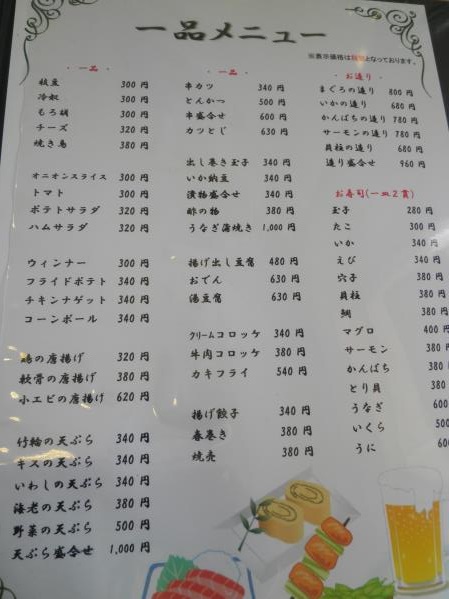 一品メニュー
※表示価格は税別となっております。
・一品・
枝豆 300 円
冷奴 300 円
もろ胡 300 円
チーズ 320 円
焼き鳥 380 円
オニオンスライス 300 円
トマト 300 円
ポテトサラダ 320 円
ハムサラダ 320 円
ウィンナー 300 円
フライドポテト 340 円
チキンナゲット 340 円
コーンボール 340 円
鶏の唐揚げ 320 円
軟骨の唐揚げ 380 円
小エビの唐揚げ 620 円
竹輪の天ぷら 340 円
キスの天ぷら 340 円
いわしの天ぷら 340 円
海老の天ぷら 380 円
野菜の天ぷら 500 円
天ぷら盛合せ 1,000 円
・一品・
串カツ 340 円
とんかつ 500 円
串盛合せ 600 円
カツとじ 630 円
出し巻き玉子 340 円
いか納豆 340 円
漬物盛合せ 340 円
酢の物 380 円
うなぎ蒲焼き 1,000 円
揚げ出し豆腐 480 円
おでん 630 円
湯豆腐 630 円
クリームコロッケ 340 円
牛肉コロッケ 380 円
カキフライ 540 円
揚げ餃子 340 円
春巻き 380 円
焼売 380 円
・お造り・
まぐろの造り 800 円
いかの造り 680 円
かんぱちの造り 780 円
サーモンの造り 780 円
貝柱の造り 680 円
造り盛合せ 960 円
お寿司(一皿２貫)
玉子 280 円
たこ 300 円
いか 340 円
えび 340 円
穴子 380 円
貝柱 380 円
鯛 380 円
マグロ 400 円
サーモン 380 円
かんぱち 380 円
とり貝 380 円
うなぎ 600
いくら 500
うに 600